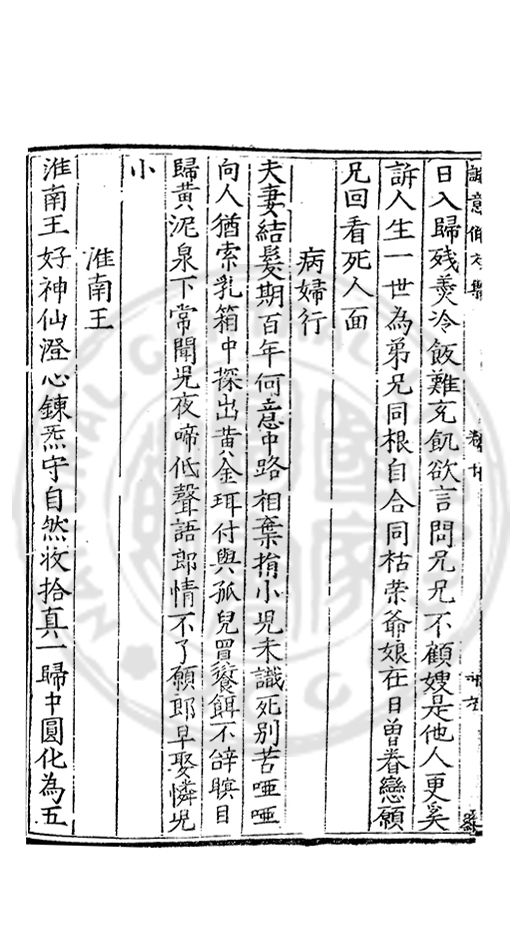 誠意伯文集
卷十
日入歸殘羹冷飯難充飢欲言問兄兄不顧嫂是他人更奚
訴人生一世為弟兄同根自合同枯荣爺娘在日曽眷戀願
兄回看死人面
病婦行
夫妻結髮期百年何意中路相棄捐小児未識死别苦啞啞
向人猶索乳箱中探出黄金珥付與孤兒買餐餌不辞瞑目
歸黄泥泉下常聞児夜啼低聲語郎情不了願郎早娶憐児
小
淮南王
淮南王好神仙澄心鍊炁守自然收拾真一歸中圓化為五